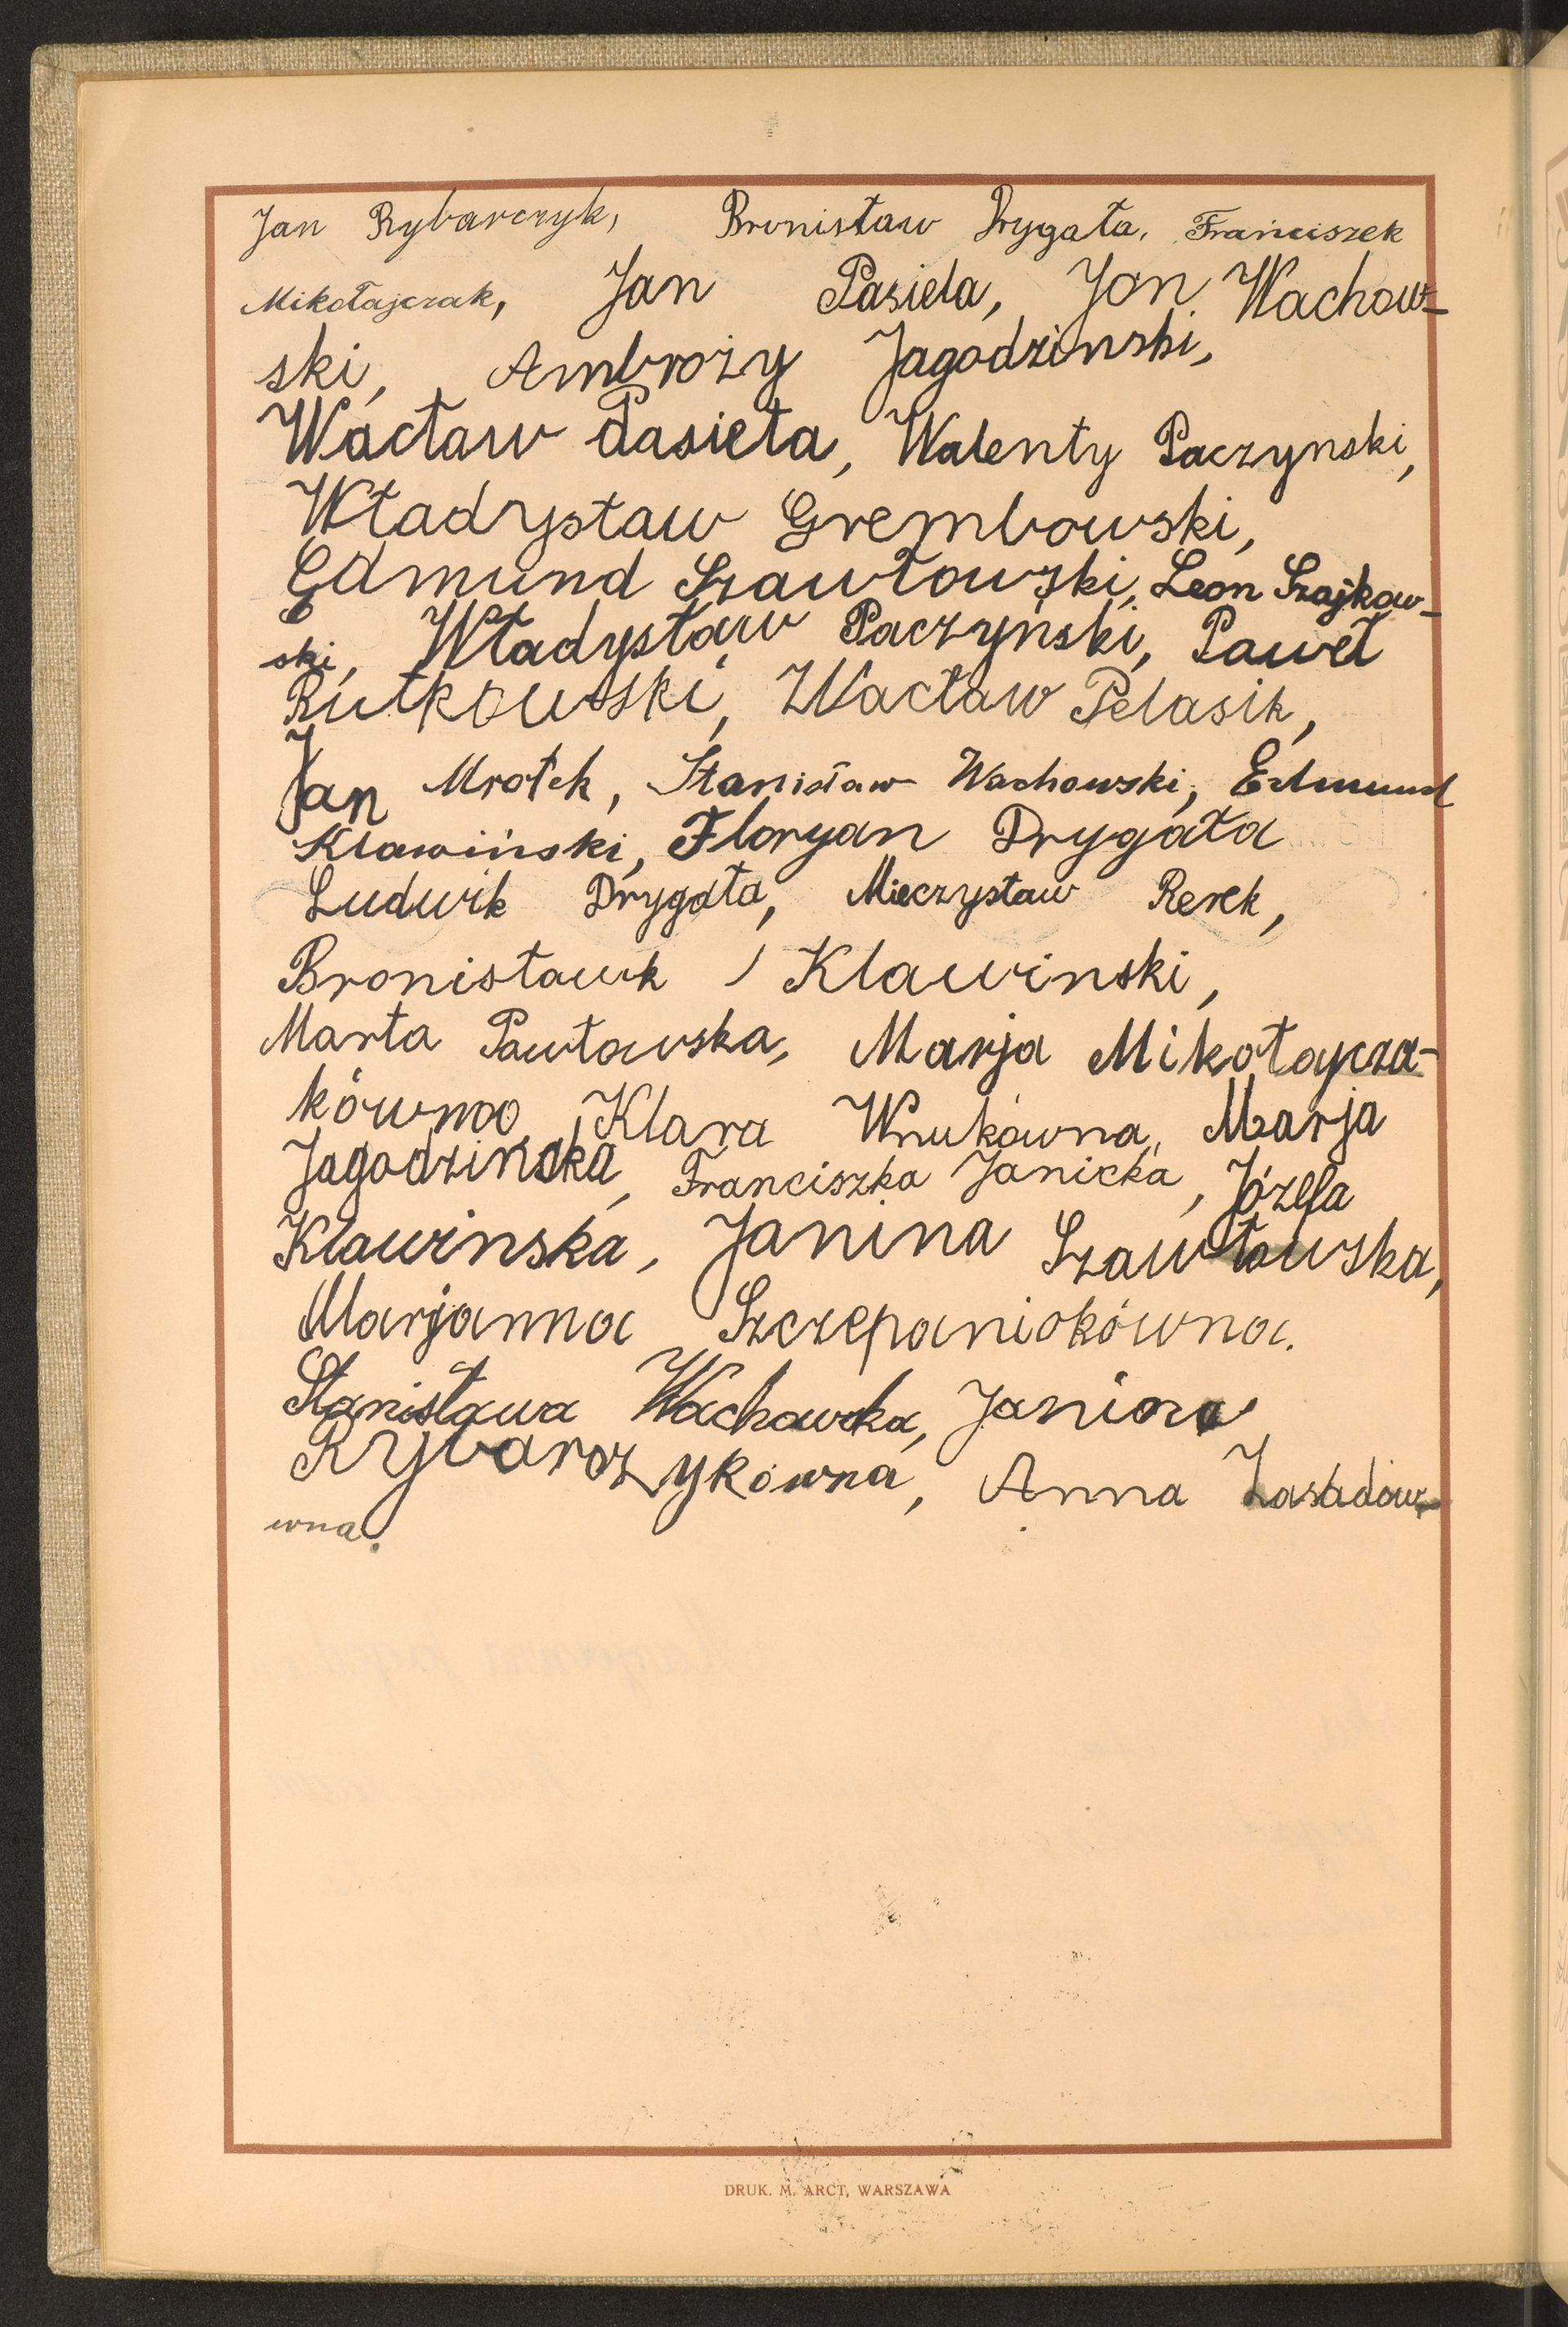 Jan Rybarczyk, Bronisław Drygała, Franciszek
Mikołajczak, Jan Pasiela, Jan Wachow-
ski, Ambroży Jagodzinski,
Wacław Pasieła, Walenty Paczynski,
Władysław Grembowski,
Edmund Szawłowski, Leon Szajkow-
ski, Władysław Paczyński, Paweł
Rutkowski, Wacław Pelasik,
Jan Mrołek, Stanisław Wachowski, Edmund
Klawiński, Floryan Drygała
Ludwik Drygała, Mieczysław Rerek,
Bronisławk Klawinski,
Marta Pawławska, Marja Mikołajcza-
kówna, Klara Wnukówna, Marja
Jagodzińska, Franciszka Janicka, Józefa
Klawinska, Janina Szawłowska,
Marjanna Szczepaniakówna.
Stanisława Wachowska, Janina
Rybarczykówna, Anna Zasadów-
wna.
DRUK. M. ARCT, WARSZAWA